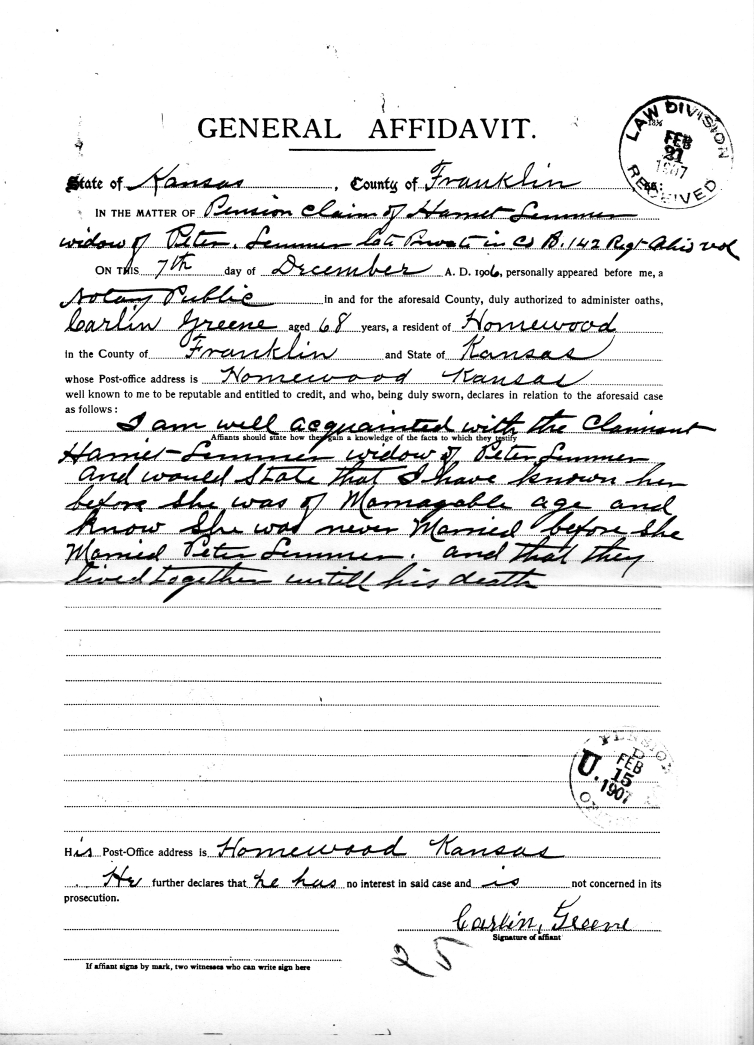 GENERAL AFFIDAVIT.
LAW DIVISION
FEB
21
1907
RECEIVED
State of Kansas, County of Franklin ss:
IN THE MATTER OF Pension Claim of Harriet Lemmer
widow of Peter. Lemmer late Private in Co B. 142 Regt Ohio vol
ON THIS 7th day of December A. D. 1906, personally appeared before me, a
Notary Public in and for the aforesaid County, duly authorized to administer oaths,
Carlin Greene aged 68 years, a resident of Homewood
in the County of Franklin and State of Kansas
whose Post-office address is Homewood Kansas
well known to me to be reputable and entitled to credit, and who, being duly sworn, declares in relation to the aforesaid case
as follows:
I am well acquainted with the Claimant
Affiants should state how they gain a knowledge of the facts to which they testify
Harriet Lemmer widow of Peter Lemmer
and would State that I have known her
before she was of Marragable age and
know She was never Married before she
Married Peter Lemmer. and that they
lived together untill his death
PENSION
U.
FEB
15
1907
His Post-Office address is Homewood Kansas
He further declares that he has no interest in said case and is not concerned in its
prosecution.
Carlin, Greene
Signature of affiant
25
If affiant signs by mark, two witnesses who can write sign here